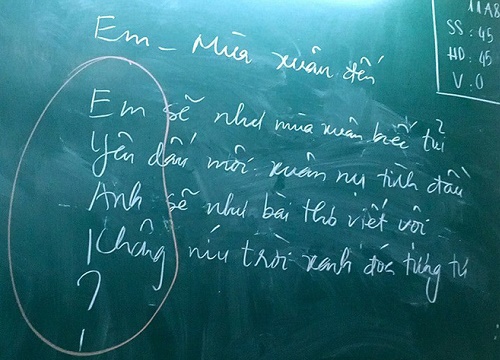 Em - Mùa xuân đến
Em sẽ như mùa xuân biết tủi
Yên dấu môi xuân nụ tình đầu
Anh sẽ như bài thơ viết vội
Không níu trời xanh đóa từng
?
!
11A8
SS: 45
HD: 45
V: 0